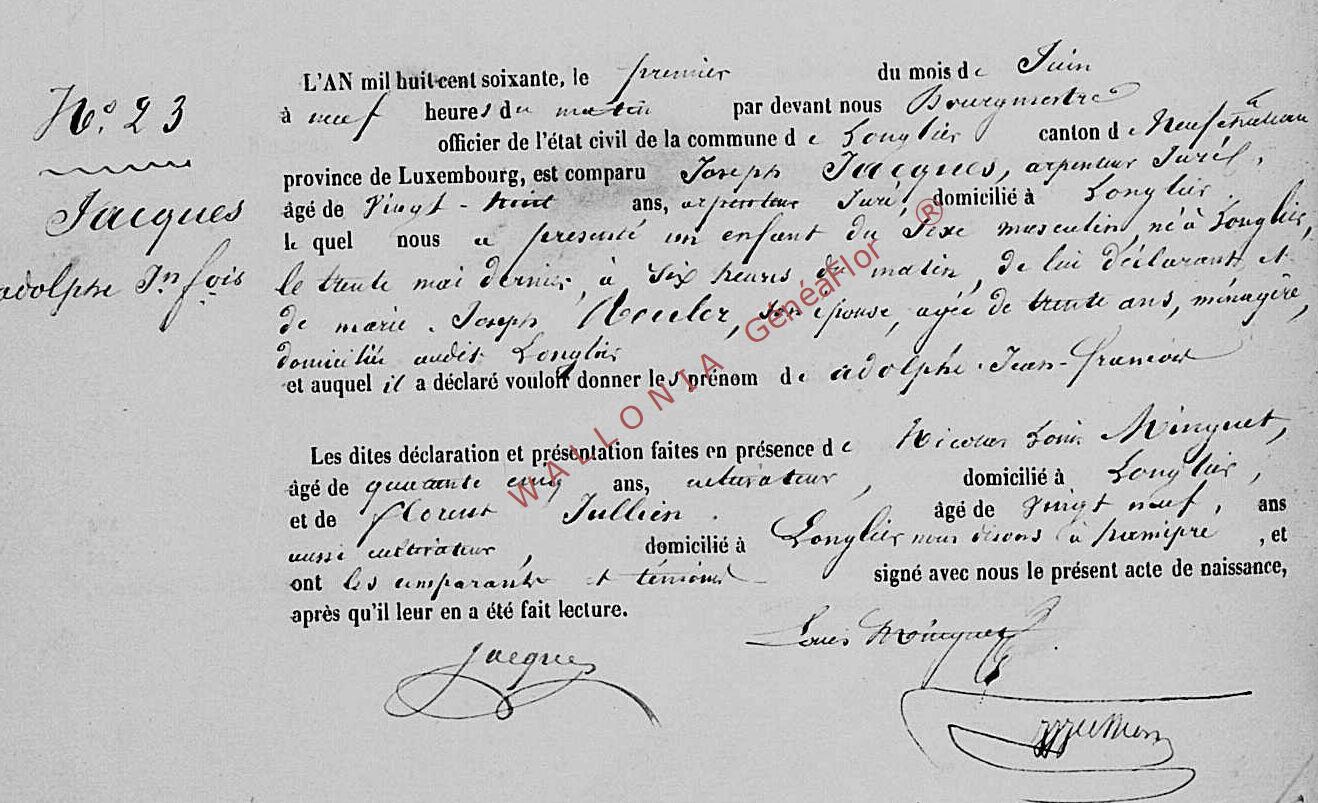 N.o 23
Jacques
adolphe Jn fois
L'AN mil huit cent soixante, le premier du mois de Juin
à neuf heures du matin par devant nous Bourgmestre
officier de l'état civil de la commune de Longlier canton de Neufchateau
province de Luxembourg, est comparu Joseph Jacques, arpenteur Juré,
âgé de Vingt-huit ans, arpenteur Juré, domicilié à Longlier.
le quel nous a presenté un enfant du sexe masculin, né à Longlier,
le trente mai dernier, à six heures du matin, de lui déclarant et
de marie Joseph, son épouse, agée de trente ans, ménagère,
domiciliée audit Longlier
et auquel il a déclaré vouloir donner les prénom de adolphe Jean-francois
Les dites déclaration et présentation faites en présence de Nicolas Louis Minguet,
âgé de quarante cinq ans, cultivateur, domicilié à Longlier,
et de florent Jullien. âgé de Vingt neuf, ans
aussi cultivateur, domicilié à Longlier, et
ont les comparants et témoins signé avec nous le présent acte de naissance,
après qu'il leur en a été fait lecture.
Jacques
Louis Minguet
WALLONIA GénéaFlor ®